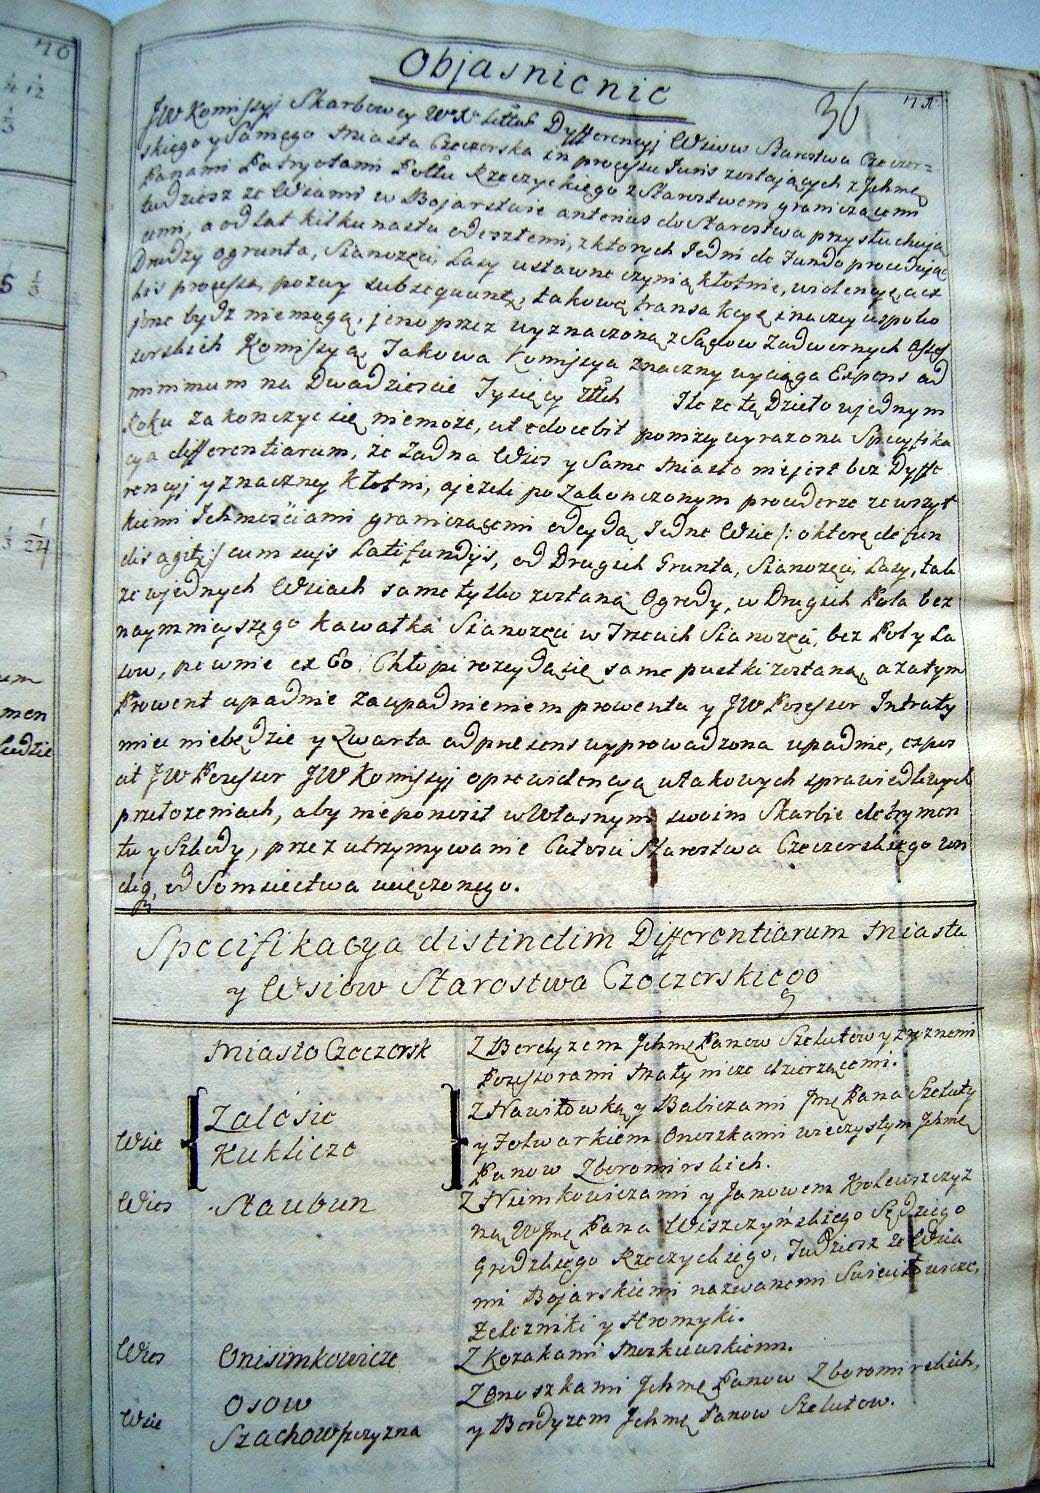 Objasnienie
36
JW Komissyi Skarbowey W° X° Litt° Dyfferencyi Wsiow Starostwa Czeczer=
skiego y Samego Miasta Czeczerska in processu Juris zostaiących z Ichmę
Panami Patryotami Pttu Rzeczyckiego z Starostwem graniczącemi
tudziesz ze Wsiami w Bojarstwie anterius do Starostwa przysłuchują
cemi, a od lat kilkunastu odeszłemi, z ktorych Jedni de Fundo procedują
Drudzy o grunta, Sianozęci, Lasy ustawne czynią kłotnie, wiolencye, a ex
his processa, pozwy subsequuntę, takowe transakcye inaczey uspoko
jone bydź niemogą, jeno przez wyznaczoną z Sądow Zadwornych Asses
sorskich Komissyą Jakowa Komissya znaczny wyciąga Expens ad
minimum na Dwadziescie Tysięcy Złłch Ile ze te Dzieło w jednym
Roku zakonczyc się niemoże, ut edocebit poniżey wyrażona Specyfika
cya differentiarum, że Żadna Wies y Same Miasto niejest bez Dyffe
rencyi y znaczney Kłotni, a jeżeli po Zakonczonym procederze ze wszyt
kiemi Ichmosciami graniczącemi odeydą Jedne Wsie /: o ktore de fun
dis agitę :/ cum suis Latifundijs, od Drugich Grunta, Sianozęci, Lasy, tak
ze w jednych Wsiach same tylko zostaną Ogrody, w Drugich Pola bez
naymnieyszego kawałka Sianozęci w Trzecich Sianozęci, bez Pol y La
sow, pewnie ex Eo Chłopi rozeydą się same pustki zostaną, a zatym
Prowent upadnie za upadnieniem prowentu y JW Possessor Intraty
miec niebędzie y Kwarta ad praesens wyprowadzona upadnie, expos
cit JW Possessor JW Komissyi o prowidencyą w takowych sprawiedliwych
przełożeniach, aby nieponosił w Własnym swoim Skarbie detrymen
tu y Szkody, przez utrzymywanie Całosci Starostwa Czeczerskiego un
dią, od Somsiectwa uciążonego.
Specifikacya distinctim Differentiarum Miasta
y Wsiow Starostwa Czeczerskiego
Miasto Czeczersk
Z Berdyzem Ichmę Panow Szelutow y zyznemi
Possessorami Małynicze dzierżącemi.
Wsie Zalesie
Kuklicze
Z Nawiłowką y Babiczami Jmę Pana Szeluty
y Folwarkiem Onoszkami wieczystym Ichmę
Panow Zboromirskich.
Wies Staubun
Z Niemkowiczami y Janowem
ną WJmę Pana Wiszczyńskiego Sędziego
Grodzkiego Rzeczyckiego, Tudziesz ze Wsia
mi Bojarskiemi nazwanemi
Zelezniki y Hromyki.
Wies Onisimkowicze
Z Kozakami Moskiewskiemi.
Wsie Osow
Szachowszczyzna
Z Onoszkami Ichmę Panow Zboromirskich,
y Berdyzem Ichmę Panow Szelutow.